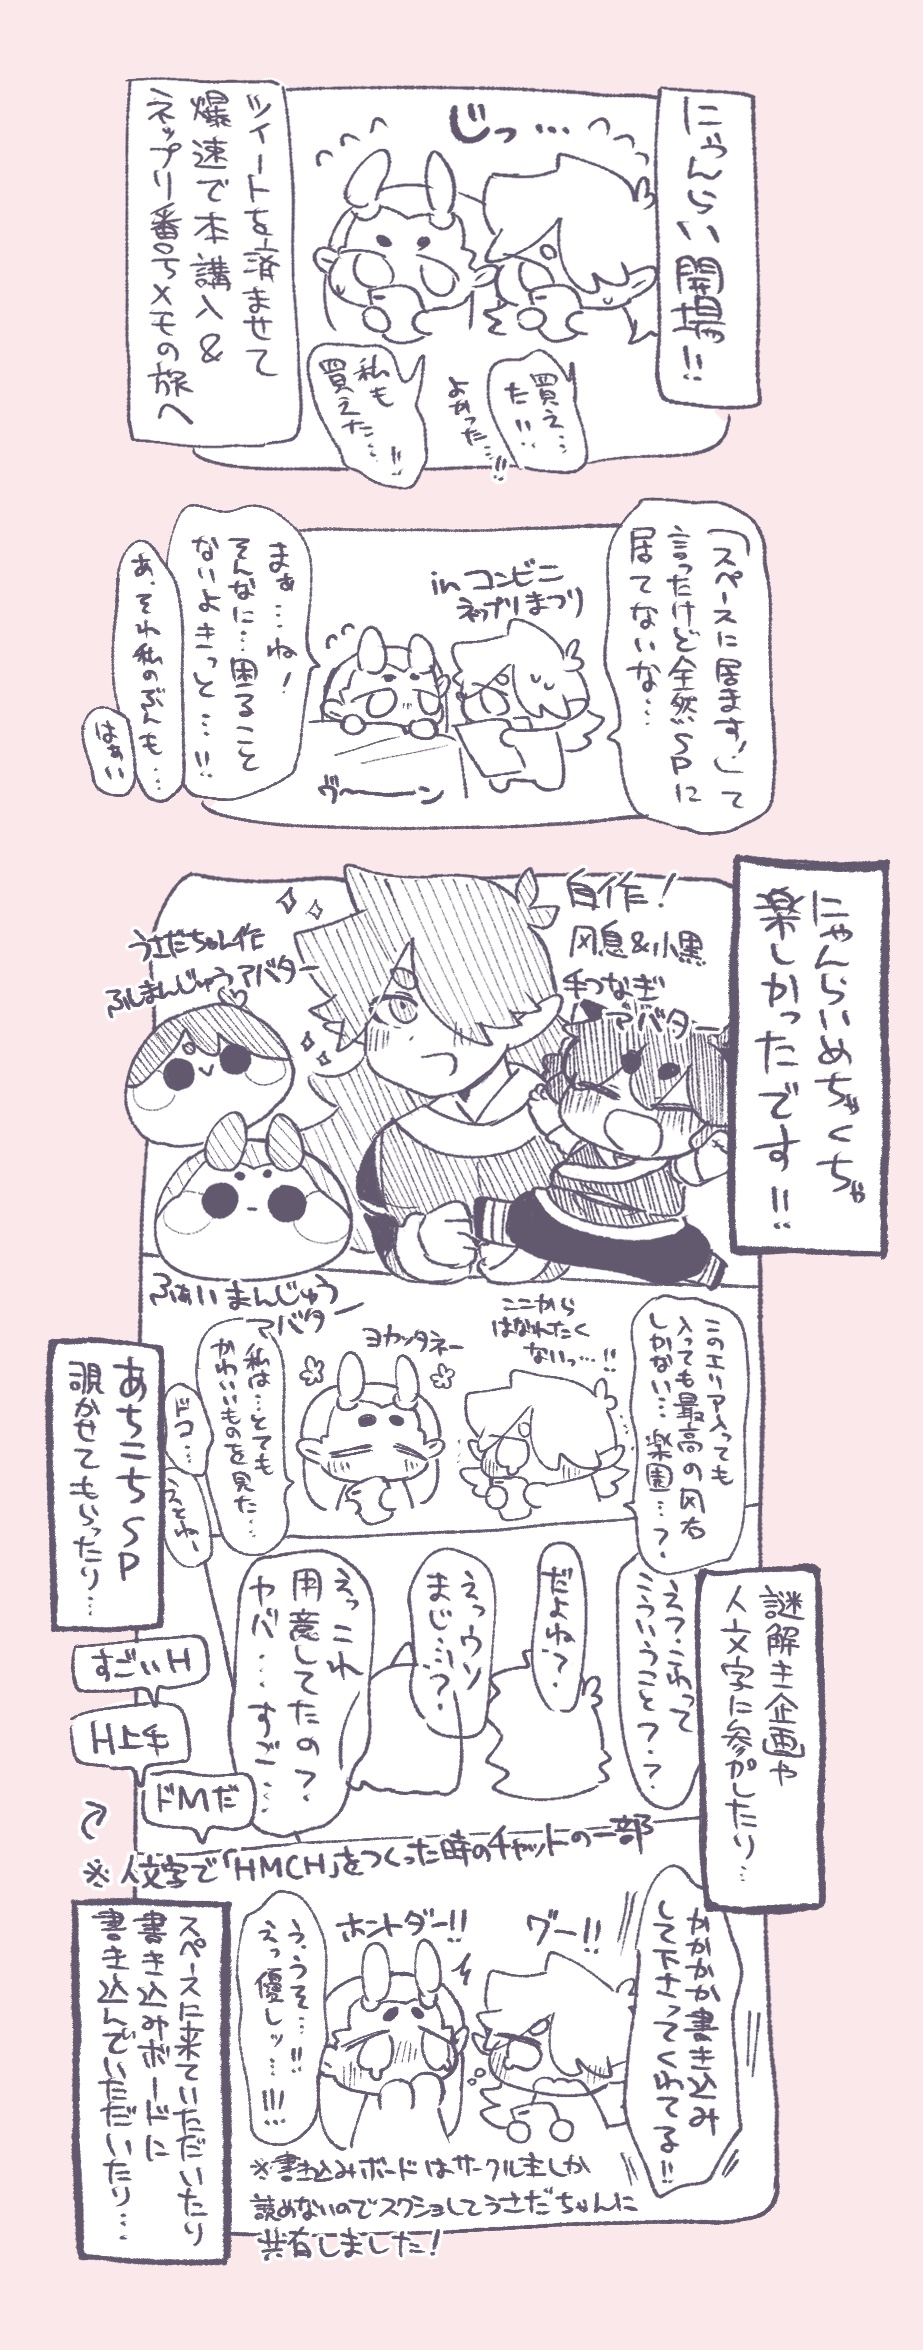 にゃんらい開場!!
じっ…
買え…
た!!
よかった…!!
私も
買えた…!!
ツイートを済ませて
爆速で本購入&
ネップリ番号メモの旅へ
「スペースに居ます!」って
言ったけど全然SPに
居てないな…
in コンビニ
ネップリまつり
ヴ〜ーン
まぁ…ね!
そんなに…困ること
ないよきっと…!!
あ、それ私のぶんも…
はぁい
にゃんらいめちゃくちゃ
楽しかったです!!
自作!
风息&小黒
手つなぎ
アバター
うさだちゃん作
ふしまんじゅうアバター
ふぁいまんじゅう
アバター
このエリア入っても
入っても最高の风右
しかない…楽園…?
ここから
はなれたく
ないっ…!!
ヨカッタネー
私は…とても
かわいいものを見た…
ドコ…
えとねー
あちこちSP
覗かせてもらったり…
謎解き企画や
人文字に参加したり…
えっ、これって
こういうこと??
だよね?
えっウソ
まじ…?
えっこれ
用意してたの?
ヤバ…すご…
すごいH
H上手
ドMだ
※人文字で「HMCH」をつくった時のチャットの一部
かかかか書き込み
して下さってくれてる!!
グー!!
ホントダー!!
う、うそ…!!
えっ優しッ…!!!
スペースに来ていただいたり
書き込みボードに
書き込んでいただいたり…
※書き込みボードはサークル主しか
読めないのでスクショしてうさだちゃんに
共有しました!